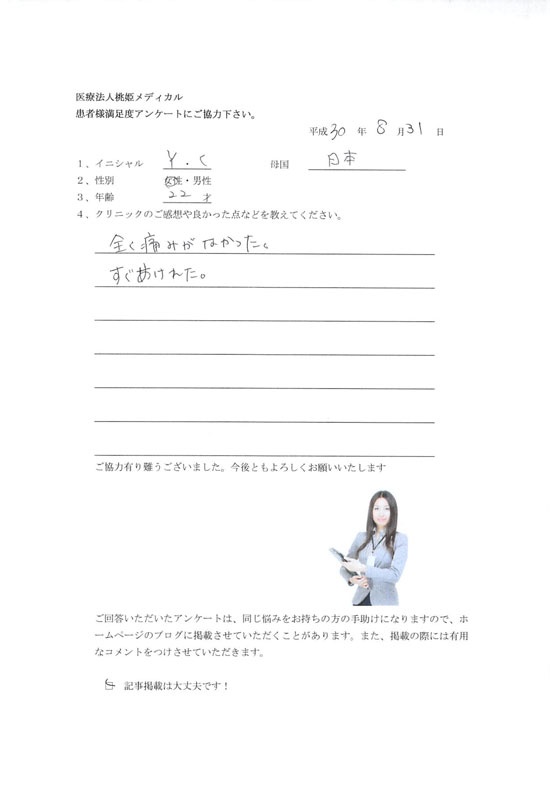 医療法人桃姫メディカル
患者様満足度アンケートにご協力下さい。
平成30年 8月31日
1、イニシャル Y.C 母国 日本
2、性別 女性・男性
3、年齢 22才
4、クリニックのご感想や良かった点などを教えてください。
全く痛みがなかった。
すぐあけれた。
ご協力有り難うございました。今後ともよろしくお願いいたします
ご回答いただいたアンケートは、同じ悩みをお持ちの方の手助けになりますので、ホ
ームページのブログに掲載させていただくことがあります。また、掲載の際には有用
なコメントをつけさせていただきます。
記事掲載は大丈夫です！